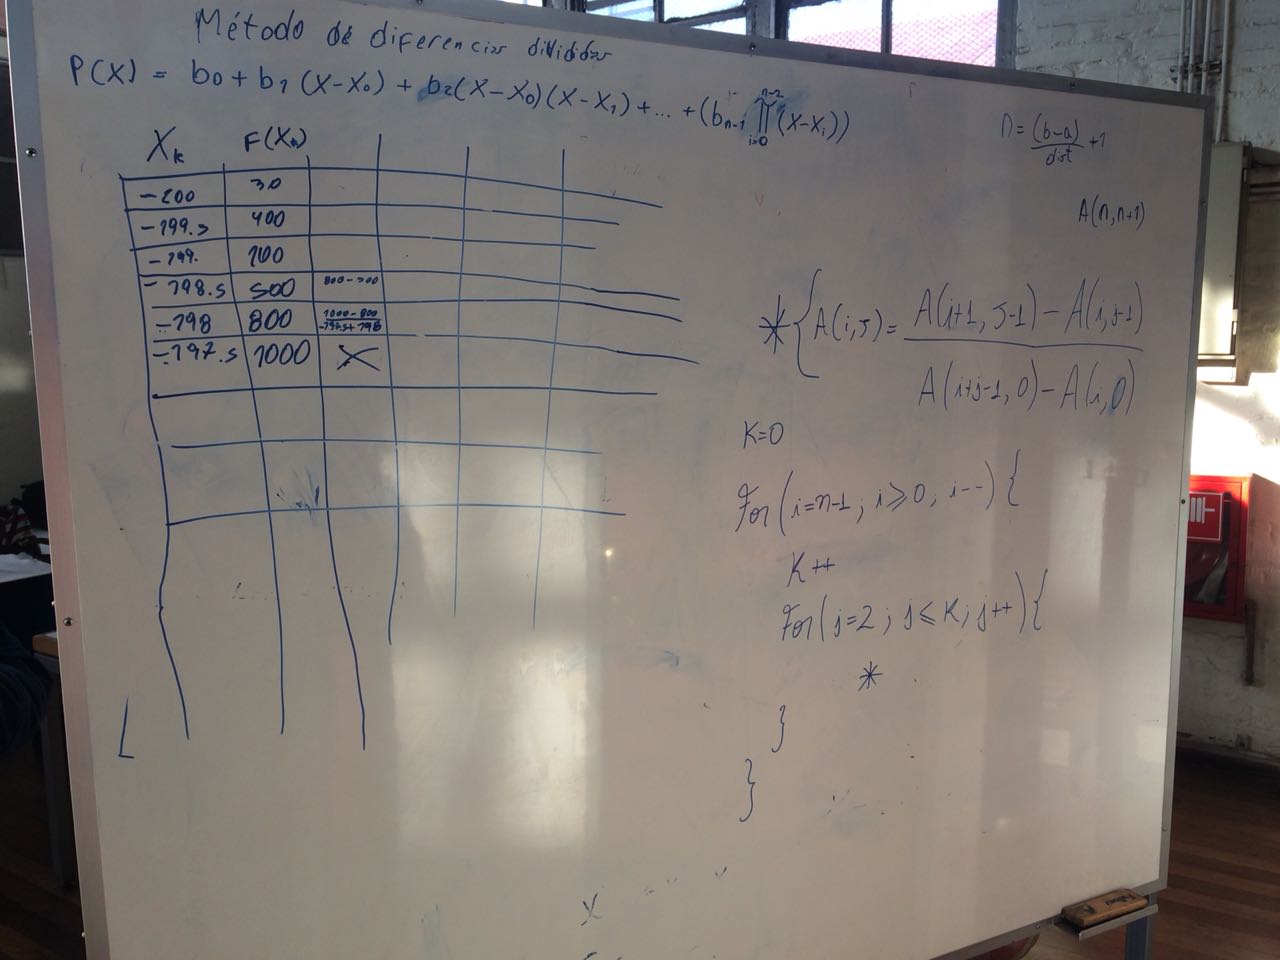 Método de diferencias divididas
P(X) = b0 + b1 (X-X0) + b2(X-X0)(X-X1) + ... + (bn-1 ∏ i=0 n-2 (X-Xi))
Xk F(Xk)
-200 30
-199.5 400
-199. 100
-198.5 500 800-500
-198 800 1000-800 / -197.5+198
-197.5 1000 X
n = (b-a) / dist + 1
A(n,n+1)
* { A(i,j) = A(i+1, j-1) - A(i, j-1) / A(i+j-1, 0) - A(i, 0)
K=0
For (i=n-1 ; i≥0 ; i--) {
K++
For (j=2 ; j≤K ; j++) {
*
}
}
X